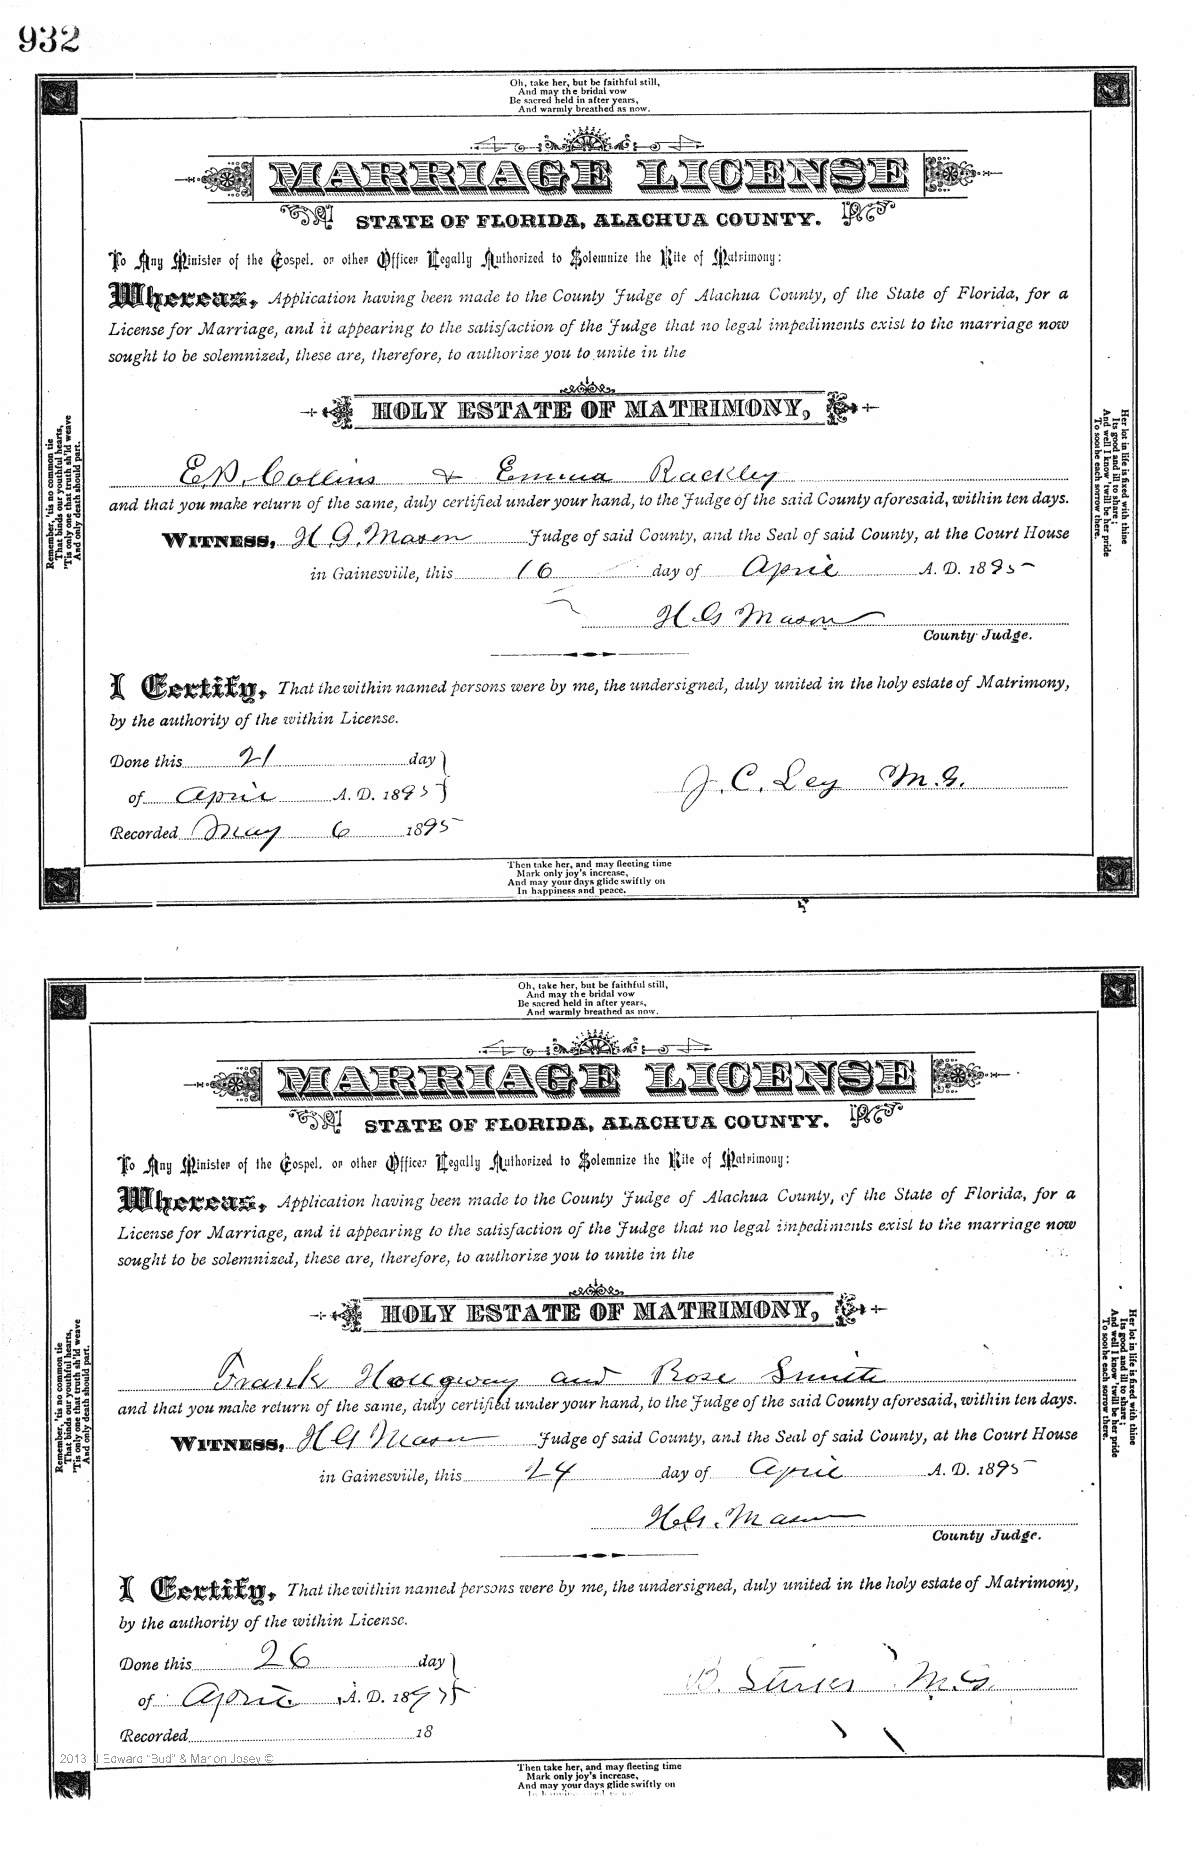 932
Oh, take her, but be faithful still,
And may the bridal vow
Be sacred held in after years,
And warmly breathed as now.
MARRIAGE LICENSE
STATE OF FLORIDA, ALACHUA COUNTY.
To Any Minister of the Gospel, or other Officer Legally Authorized to Solemnize the Rite of Matrimony:
Whereas, Application having been made to the County Judge of Alachua County, of the State of Florida, for a
License for Marriage, and it appearing to the satisfaction of the Judge that no legal impediments exist to the marriage now
sought to be solemnized, these are, therefore, to authorize you to unite in the
HOLY ESTATE OF MATRIMONY,
Remember, 'tis no common tie
That binds our youthful hearts,
'Tis only one that truth sh'ld weave
And only death should part.
Her lot in life is fixed with thine
Its good and ill to share;
And well I know 'twill be her pride
To soothe each sorrow there.
E.D. Collins & Emma Rackley
and that you make return of the same, duly certified under your hand, to the Judge of the said County aforesaid, within ten days.
WITNESS, H.G. Mason Judge of said County, and the Seal of said County, at the Court House
in Gainesville, this 16 day of April A. D. 1895
H G Mason
County Judge.
I Certify, That the within named persons were by me, the undersigned, duly united in the holy estate of Matrimony,
by the authority of the within License.
Done this 21 day
of April A. D. 1895
J. C. Ley M.G.
Recorded May 6 1895
Then take her, and may fleeting time
Mark only joy's increase,
And may your days glide swiftly on
In happiness and peace.
Oh, take her, but be faithful still,
And may the bridal vow
Be sacred held in after years,
And warmly breathed as now.
MARRIAGE LICENSE
STATE OF FLORIDA, ALACHUA COUNTY.
To Any Minister of the Gospel, or other Officer Legally Authorized to Solemnize the Rite of Matrimony:
Whereas, Application having been made to the County Judge of Alachua County, of the State of Florida, for a
License for Marriage, and it appearing to the satisfaction of the Judge that no legal impediments exist to the marriage now
sought to be solemnized, these are, therefore, to authorize you to unite in the
HOLY ESTATE OF MATRIMONY,
Remember, 'tis no common tie
That binds our youthful hearts,
'Tis only one that truth sh'ld weave
And only death should part.
Her lot in life is fixed with thine
Its good and ill to share;
And well I know 'twill be her pride
To soothe each sorrow there.
Frank and Rose Smith
and that you make return of the same, duly certified under your hand, to the Judge of the said County aforesaid, within ten days.
WITNESS, H G Mason Judge of said County, and the Seal of said County, at the Court House
in Gainesville, this 24 day of April A. D. 1895
H.G. Mason
County Judge.
I Certify, That the within named persons were by me, the undersigned, duly united in the holy estate of Matrimony,
by the authority of the within License.
Done this 26 day
of April A. D. 1895
B. M.G.
Recorded 18
2013 J Edward "Bud" & Marion Josey ©
Then take her, and may fleeting time
Mark only joy's increase,
And may your days glide swiftly on